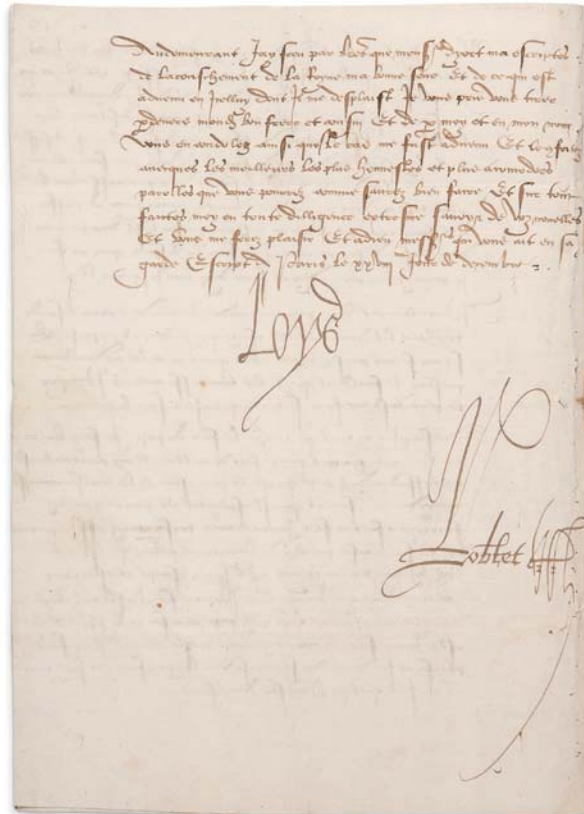 Au demourant Jay sceu par lres que mons. ma escriptes
de lacouschement de la Royne ma bonne seur Et de ce qui est
advenu en Icelluy dont Il me desplaist Je vous prie vous tirer
devers mond bon frere et cousin Et de p moy et en mon nom
vous en condoulez ainsi que si le cas me fust advenu Et le
avecques les meilleurs les plus honnestes et plus acomodees
parolles que vous pourrez comme saurez bien faire Et sur tout
faictes moy en toute dilligence savoir de voz nouvelles
Et vous me ferez plaisir Et adieu mess. qui vous ait en sa
garde Escript A Paris le xxviii Jour de decembre
Loys
Robertet